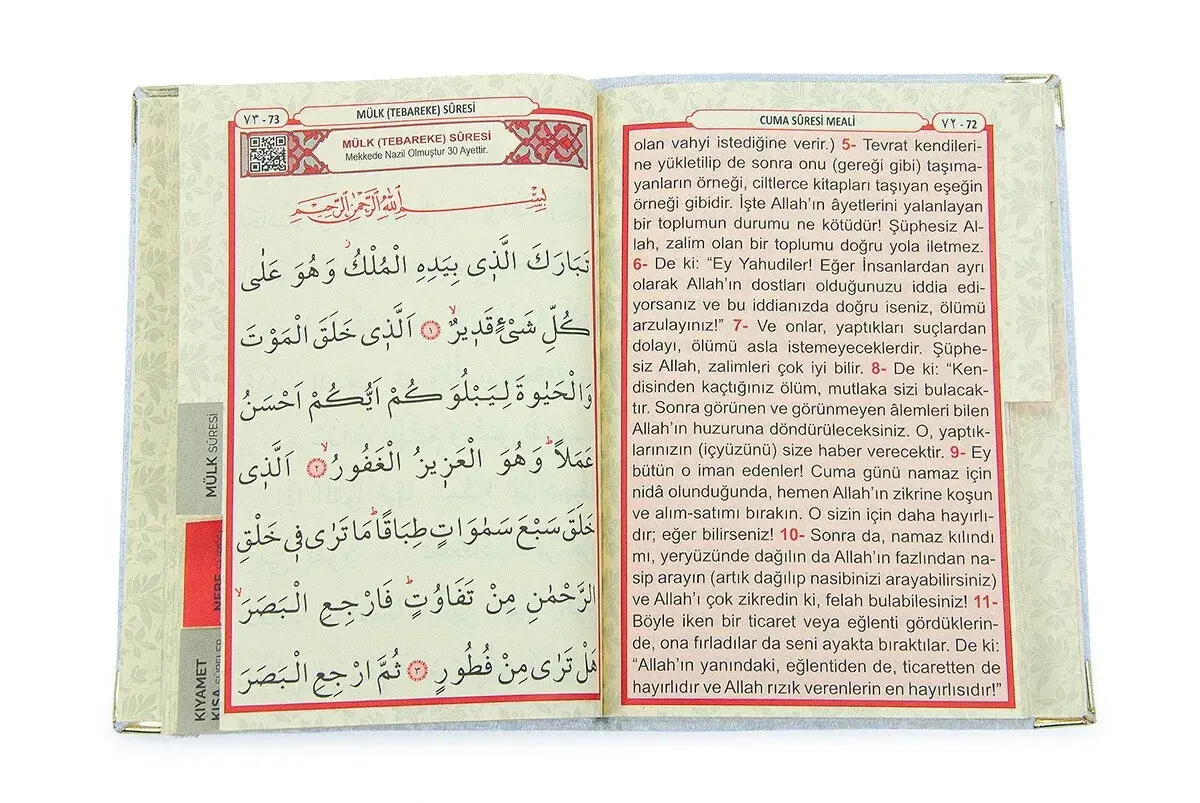 CUMA SÛRESİ MEALİ
٧٢ - 72
olan vahyi istediğine verir.) 5- Tevrat kendileri-
ne yükletilip de sonra onu (gereği gibi) taşıma-
yanların örneği, ciltlerce kitapları taşıyan eşeğin
örneği gibidir. İşte Allah’ın âyetlerini yalanlayan
bir toplumun durumu ne kötüdür! Şüphesiz Al-
lah, zalim olan bir toplumu doğru yola iletmez.
6- De ki: “Ey Yahudiler! Eğer İnsanlardan ayrı
olarak Allah’ın dostları olduğunuzu iddia edi-
yorsanız ve bu iddianızda doğru iseniz, ölümü
arzulayınız!” 7- Ve onlar, yaptıkları suçlardan
dolayı, ölümü asla istemeyeceklerdir. Şüphe-
siz Allah, zalimleri çok iyi bilir. 8- De ki: “Ken-
disinden kaçtığınız ölüm, mutlaka sizi bulacak-
tır. Sonra görünen ve görünmeyen âlemleri bilen
Allah’ın huzuruna döndürüleceksiniz. O, yaptık-
larınızın (içyüzünü) size haber verecektir. 9- Ey
bütün o iman edenler! Cuma günü namaz için
nidâ olunduğunda, hemen Allah’ın zikrine koşun
ve alım-satımı bırakın. O sizin için daha hayırlı-
dır; eğer bilirseniz! 10- Sonra da, namaz kılındı
mı, yeryüzünde dağılın da Allah’ın fazlından na-
sip arayın (artık dağılıp nasibinizi arayabilirsiniz)
ve Allah’ı çok zikredin ki, felah bulabilesiniz! 11-
Böyle iken bir ticaret veya eğlenti gördüklerin-
de, ona fırladılar da seni ayakta bıraktılar. De ki:
“Allah’ın yanındaki, eğlentiden de, ticaretten de
hayırlıdır ve Allah rızık verenlerin en hayırlısıdır!”
٧٣ - 73
MÜLK (TEBAREKE) SÛRESİ
MÜLK (TEBAREKE) SÛRESİ
Mekkede Nazil Olmuştur 30 Ayettir.
بِسْمِ اللّٰهِ الرَّحْمٰنِ الرَّحِيمِ
تَبَارَكَ الَّذ۪ي بِيَدِهِ الْمُلْكُۘ وَهُوَ عَلٰى
كُلِّ شَيْءٍ قَد۪يرٌۙ ﴿١﴾ اَلَّذ۪ي خَلَقَ الْمَوْتَ
وَالْحَيٰوةَ لِيَبْلُوَكُمْ اَيُّكُمْ اَحْسَنُ
عَمَلًاۜ وَهُوَ الْعَز۪يزُ الْغَفُورُۙ ﴿٢﴾ اَلَّذ۪ي
خَلَقَ سَبْعَ سَمٰوَاتٍ طِبَاقًاۜ مَا تَرٰى ف۪ي خَلْقِ
الرَّحْمٰنِ مِنْ تَفَاوُتٍۜ فَارْجِعِ الْبَصَرَۙ
هَلْ تَرٰى مِنْ فُطُورٍ ﴿٣﴾ ثُمَّ ارْجِعِ الْبَصَرَ
MÜLK SÛRESİ
NEBE
KIYAMET
KISA SÛRELER